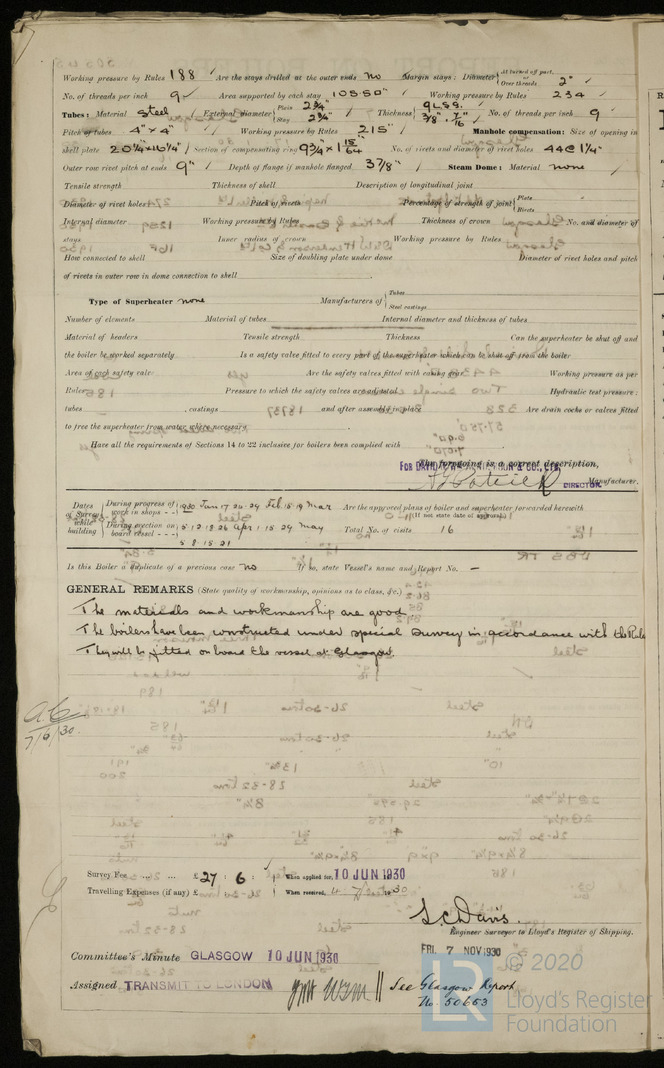 Working pressure by Rules 188 Are the stays drilled at the outer ends no Margin stays: Diameter { At turned off part, or Over threads 2"
No. of threads per inch 9 Area supported by each stay Working pressure by Rules 234
Tubes: Material Steel External diameter { Plain 2¾" Stay 2¾" Thickness { 9 L.S.G. 3/8" · 7/16" No. of threads per inch 9
Pitch of tubes 4" x 4" Working pressure by Rules 215 Manhole compensation: Size of opening in
shell plate 20¼" x 16¼" Section of compensating ring No. of rivets and diameter of rivet holes 44 @ 1¼"
Outer row rivet pitch at ends 9" Depth of flange if manhole flanged 3⅞" Steam Dome: Material none
Tensile strength Thickness of shell Description of longitudinal joint
Diameter of rivet holes Pitch of rivets Percentage of strength of joint { Plate Rivets
Internal diameter Working pressure by Rules Thickness of crown No. and diameter of
stays Inner radius of crown Working pressure by Rules
How connected to shell Size of doubling plate under dome Diameter of rivet holes and pitch
of rivets in outer row in dome connection to shell
Type of Superheater none Manufacturers of { Tubes Steel castings
Number of elements Material of tubes Internal diameter and thickness of tubes
Material of headers Tensile strength Thickness Can the superheater be shut off and
the boiler be worked separately Is a safety valve fitted to every part of the superheater which can be shut off from the boiler
Area of each safety valve Are the safety valves fitted with easing gear Working pressure as per
Rules Pressure to which the safety valves are adjusted Hydraulic test pressure:
tubes , castings and after assembly in place Are drain cocks or valves fitted
to free the superheater from water where necessary
Have all the requirements of Sections 14 to 22 inclusive for boilers been complied with
The foregoing is a correct description,
DIRECTOR. Manufacturer.
Dates of Survey while building { During progress of work in shops - - { 1930 Jan 17 24 29 Feb 15 19 Mar Are the approved plans of boiler and superheater forwarded herewith
During erection on board vessel - - - 5 12 19 26 Apr 1 15 24 May (If not state date of approval.)
5 8 15 21 Total No. of visits 16
Is this Boiler a duplicate of a previous case no If so, state Vessel's name and Report No. -
GENERAL REMARKS (State quality of workmanship, opinions as to class, &c.)
The materials and workmanship are good.
The boilers have been constructed under special survey in accordance with the Rules
They will be fitted on board the vessel at Glasgow.
7/6/30.
Survey Fee ... ... £ 27 : 6 : When applied for, 10 JUN 1930
Travelling Expenses (if any) £ : : When received,
S. C. Davis.
Engineer Surveyor to Lloyd's Register of Shipping.
Committee's Minute GLASGOW 10 JUN 1930
FRI. 7 NOV 1930
Assigned TRANSMIT TO LONDON
See Glasgow Report
No. 50653
LR © 2020
Lloyd's Register
Foundation